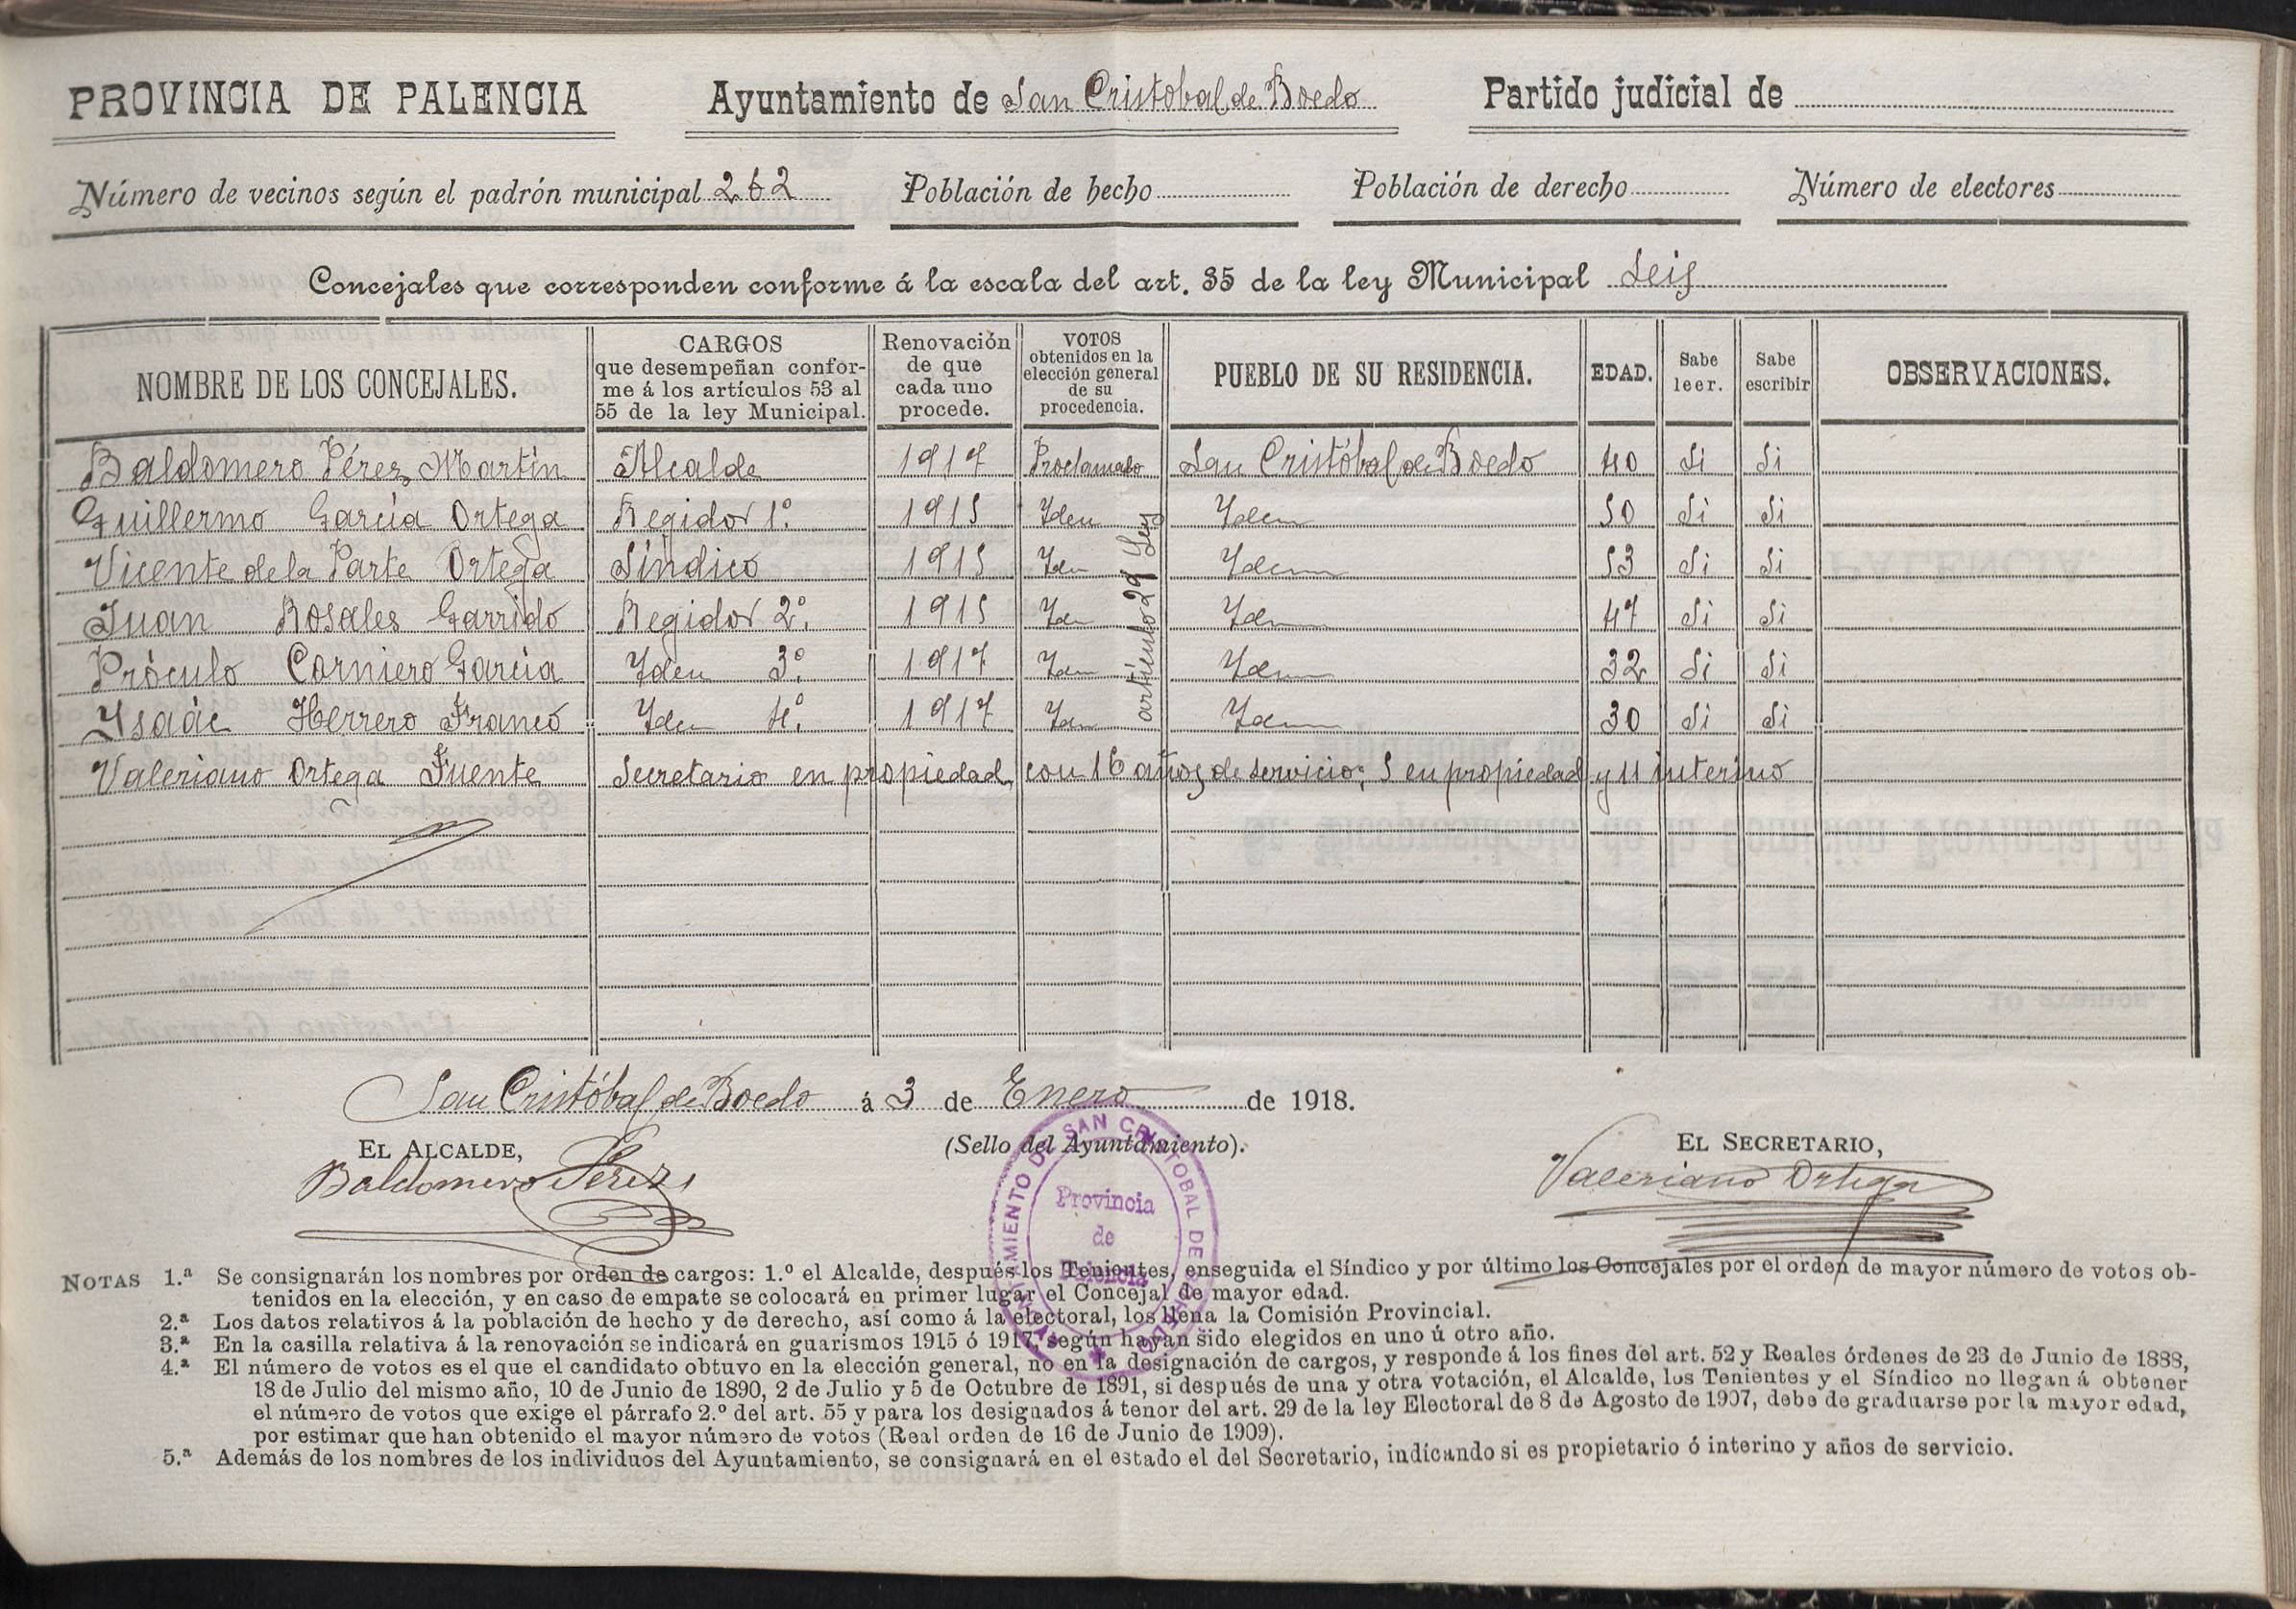 PROVINCIA DE PALENCIA Ayuntamiento de San Cristobal de Boedo Partido judicial de
Número de vecinos según el padrón municipal 262 Población de hecho Población de derecho Número de electores
Concejales que corresponden conforme á la escala del art. 35 de la ley Municipal Seis
NOMBRE DE LOS CONCEJALES. CARGOS que desempeñan conforme á los artículos 53 al 55 de la ley Municipal. Renovación de que cada uno procede. VOTOS obtenidos en la elección general de su procedencia. PUEBLO DE SU RESIDENCIA. EDAD. Sabe leer. Sabe escribir OBSERVACIONES.
Baldomero Pérez Martín Alcalde 1917 Proclamado San Cristóbal de Boedo 40 Si Si
Guillermo García Ortega Regidor 1º. 1915 Idem Idem 50 Si Si
Vicente de la Parte Ortega Síndico 1915 Idem Idem 53 Si Si
Juan Rosales Garrido Regidor 2º. 1915 Idem Idem 47 Si Si
Próculo Corniero García Idem 3º. 1917 Idem Idem 32 Si Si
Ysaác Herrero Franco Idem 4º. 1917 Idem Idem 30 Si Si
artículo 29 Ley
Valeriano Ortega Fuente Secretario en propiedad, con 16 años de servicio; 5 en propiedad y 11 interino
San Cristóbal de Boedo á 3 de Enero de 1918.
EL ALCALDE, (Sello del Ayuntamiento). EL SECRETARIO,
Baldomero Pérez Valeriano Ortega
AYUNTAMIENTO DE SAN CRISTOBAL DE BOEDO
Provincia
de
Palencia
NOTAS 1.ª Se consignarán los nombres por orden de cargos: 1.º el Alcalde, después los Tenientes, enseguida el Síndico y por último los Concejales por el orden de mayor número de votos ob-
tenidos en la elección, y en caso de empate se colocará en primer lugar el Concejal de mayor edad.
2.ª Los datos relativos á la población de hecho y de derecho, así como á la electoral, los llena la Comisión Provincial.
3.ª En la casilla relativa á la renovación se indicará en guarismos 1915 ó 1917, según hayan sido elegidos en uno ú otro año.
4.ª El número de votos es el que el candidato obtuvo en la elección general, no en la designación de cargos, y responde á los fines del art. 52 y Reales órdenes de 23 de Junio de 1888,
18 de Julio del mismo año, 10 de Junio de 1890, 2 de Julio y 5 de Octubre de 1891, si después de una y otra votación, el Alcalde, los Tenientes y el Síndico no llegan á obtener
el número de votos que exige el párrafo 2.º del art. 55 y para los designados á tenor del art. 29 de la ley Electoral de 8 de Agosto de 1907, debe de graduarse por la mayor edad,
por estimar que han obtenido el mayor número de votos (Real orden de 16 de Junio de 1909).
5.ª Además de los nombres de los individuos del Ayuntamiento, se consignará en el estado el del Secretario, indicando si es propietario ó interino y años de servicio.